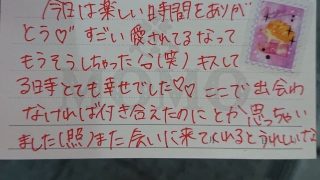 今日は楽しい時間をありが
とう♡ すごい愛されてるなって
もうそうしちゃった台(笑) キスして
る時とても幸せでした♡♡ ここで出会わ
なければ付き合えたのに とか思っちゃい
ました(照) また会いに来てくれるとうれしいな
MOMO